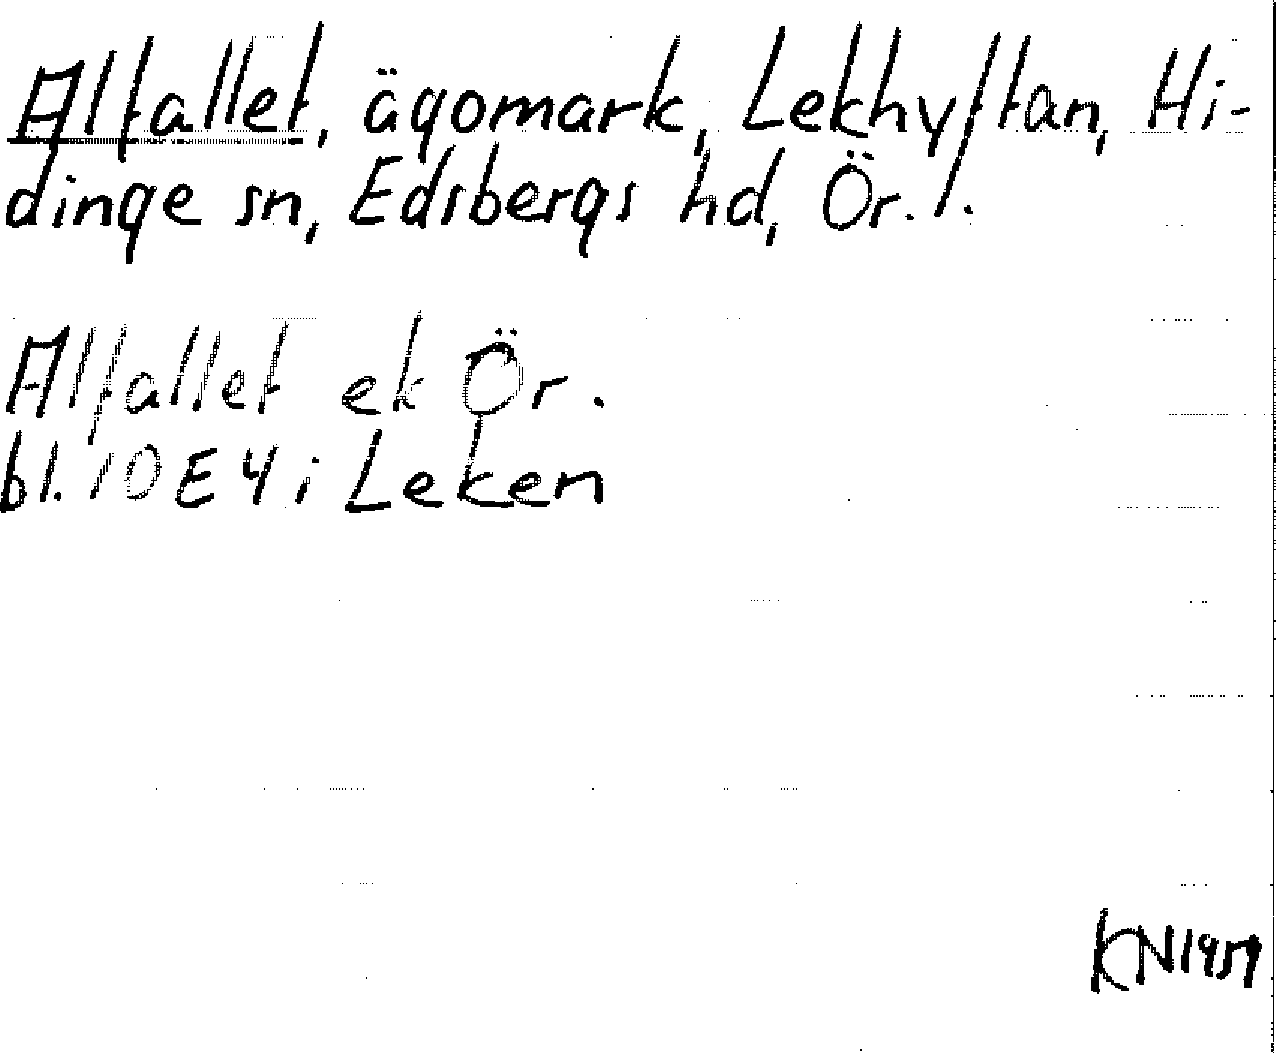 Alfallet, ägomark, Lekhyttan, Hi-
dinge sn, Edsbergs hd, Ör. l.
Alfallet ek Ör.
bl. 10 E 4 i Leken
KN 1957